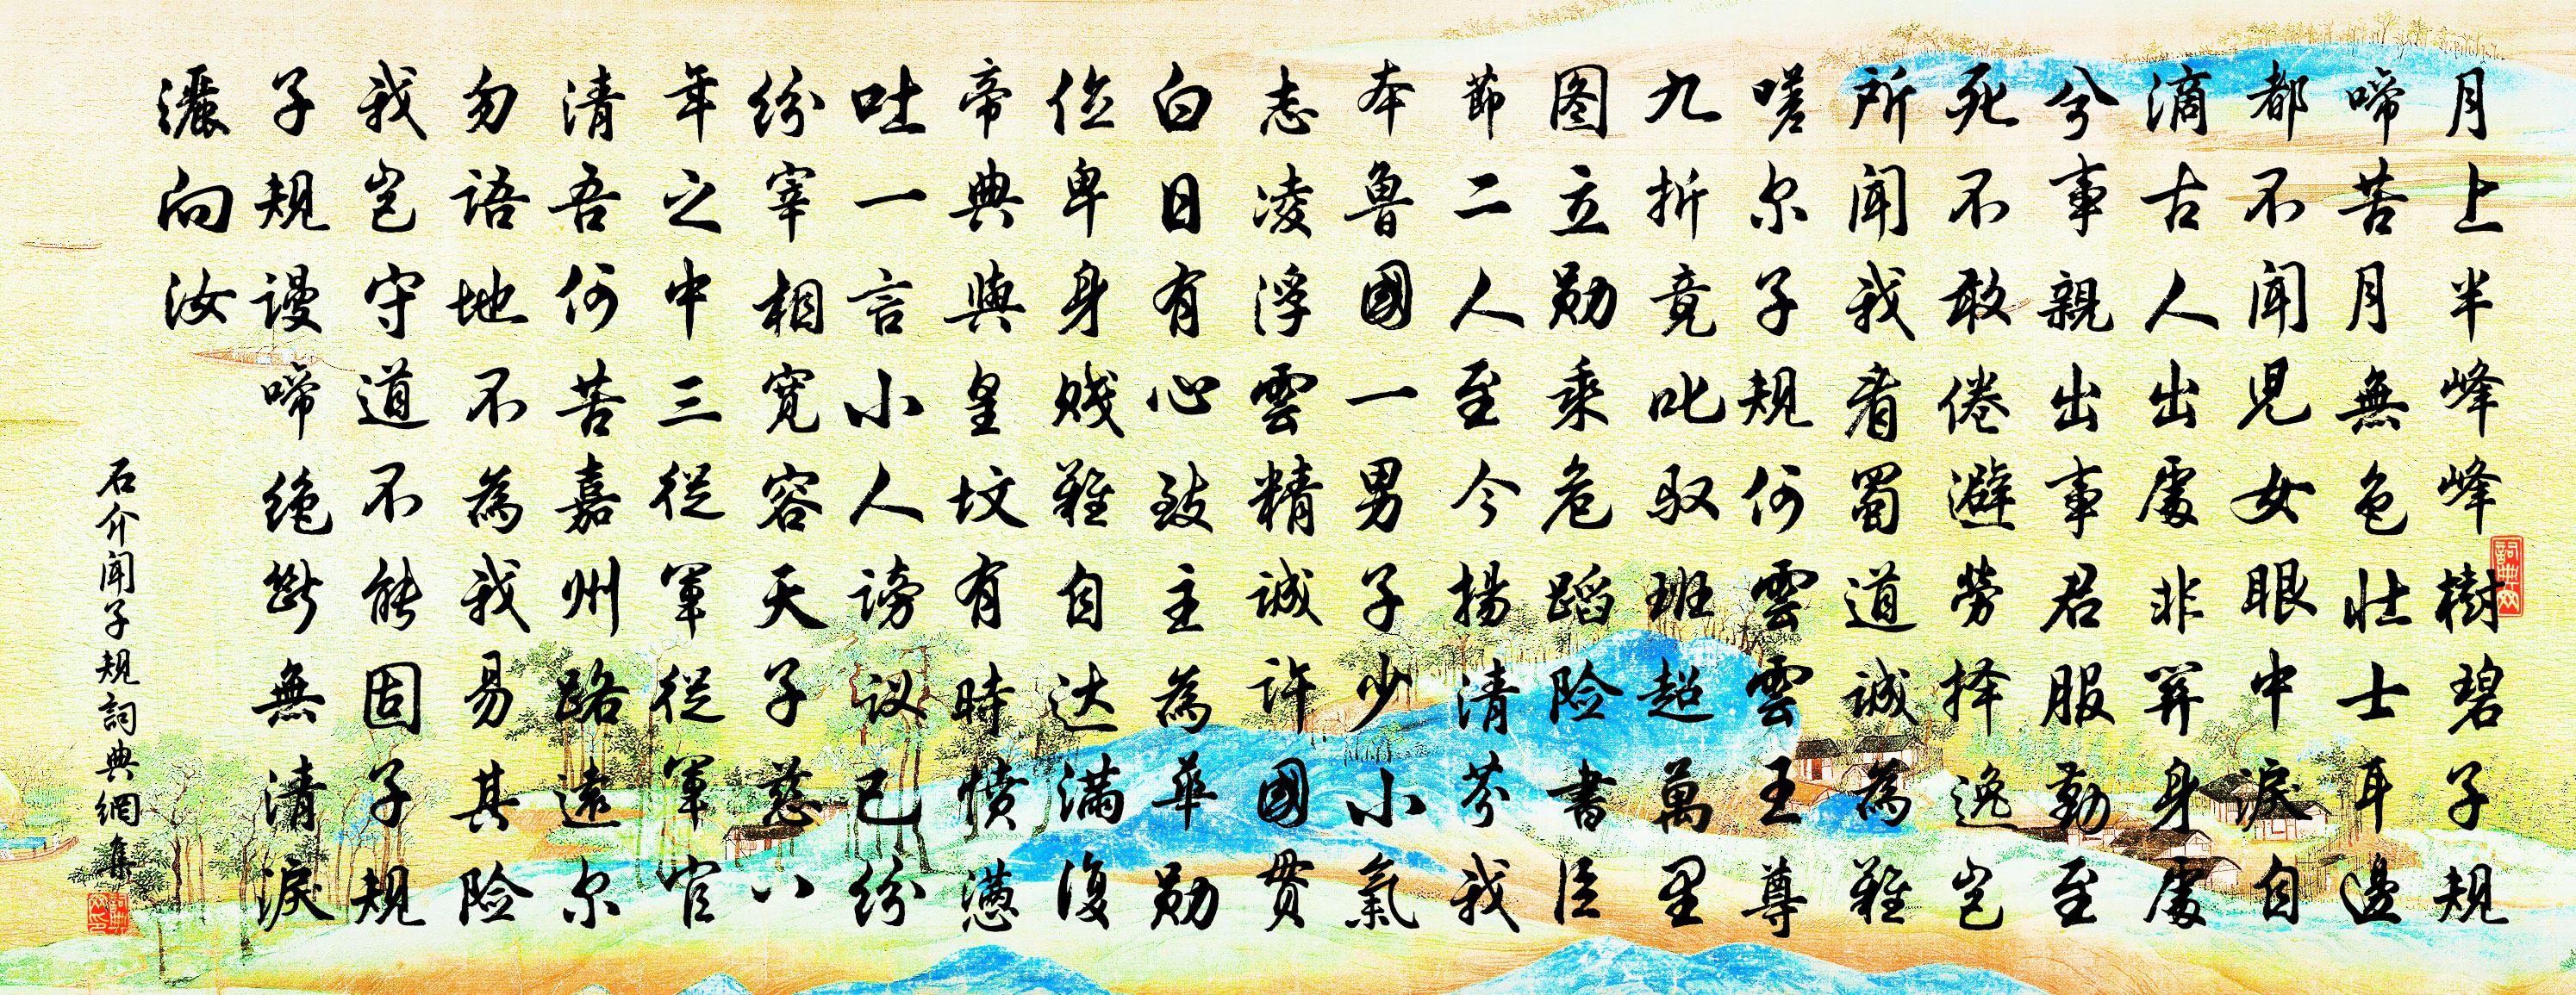 月上半峰峰樹碧子規
啼苦月無色壯士耳邊
都不聞児女眼中淚自
滴古人出處非關身處
兮事親出事君服勤至
死不敢倦避勞择逸岂
所聞我看蜀道誠為難
嗟尔子規何雲雲王尊
九折竟叱馭班超萬里
图立勋乘危蹈险書臣
節二人至今揚清芬我
本魯國一男子少小氣
志凌浮雲精誠許國貫
白日有心致主為華勋
位卑身贱難自达满復
帝典與皇坟有時憤懑
吐一言小人謗议已紛
紛宰相寬容天子慈八
年之中三從軍從軍官
清吾何苦嘉州路遠尔
勿語地不為我易其险
我岂守道不能固子規
子規謾啼絶斷無清淚
灑向汝
石介聞子規詞典網集